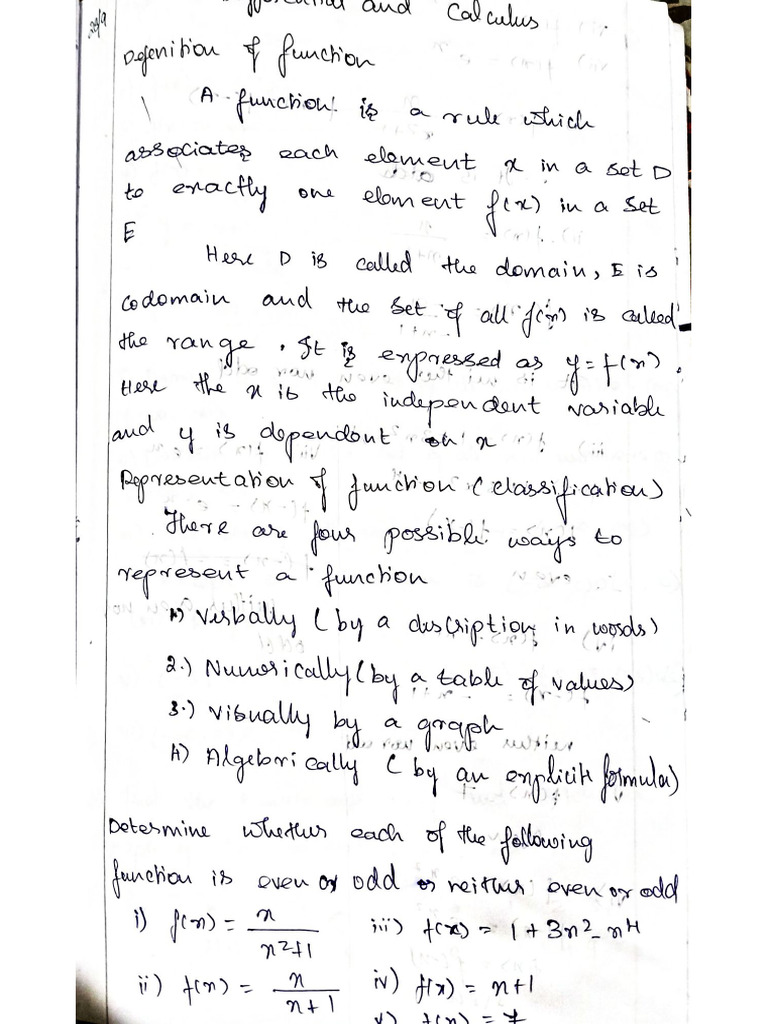 and Calculus
Defenition of function
A function is a rule which
associates each element x in a set D
to exactly one element f(x) in a set
E
Here D is called the domain, E is
codomain and the set of all f(x) is called
the range. It is expressed as y=f(x).
Here the x is the independent variable
and y is dependent on x
Representation of function (classification)
There are four possible ways to
represent a function
1) Verbally (by a description in words)
2.) Numerically (by a table of values)
3.) visually by a graph
4) Algebrically (by an explicit formula)
Determine whether each of the following
function is even or odd or neither even or odd
i) f(x) = x/x²+1 iii) f(x) = 1+3x²-x⁴
ii) f(x) = x/x+1 iv) f(x) = x+1
v) f(x) =